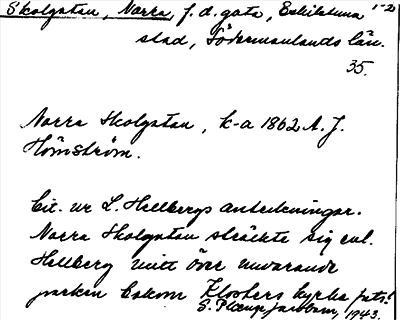 Skolgatan, Norra f.d. gata, Eskilstuna 1-2
stad, Södermanlands län.
35.
Norra Skolgatan, k-a 1862 A. J.
Holmström.
Cit. ur L. Hellbergs anteckningar.
Norra Skolgatan sträckte sig enl.
Hellberg mitt över nuvarande
parken bakom Klosters kyrka
S. 1943.